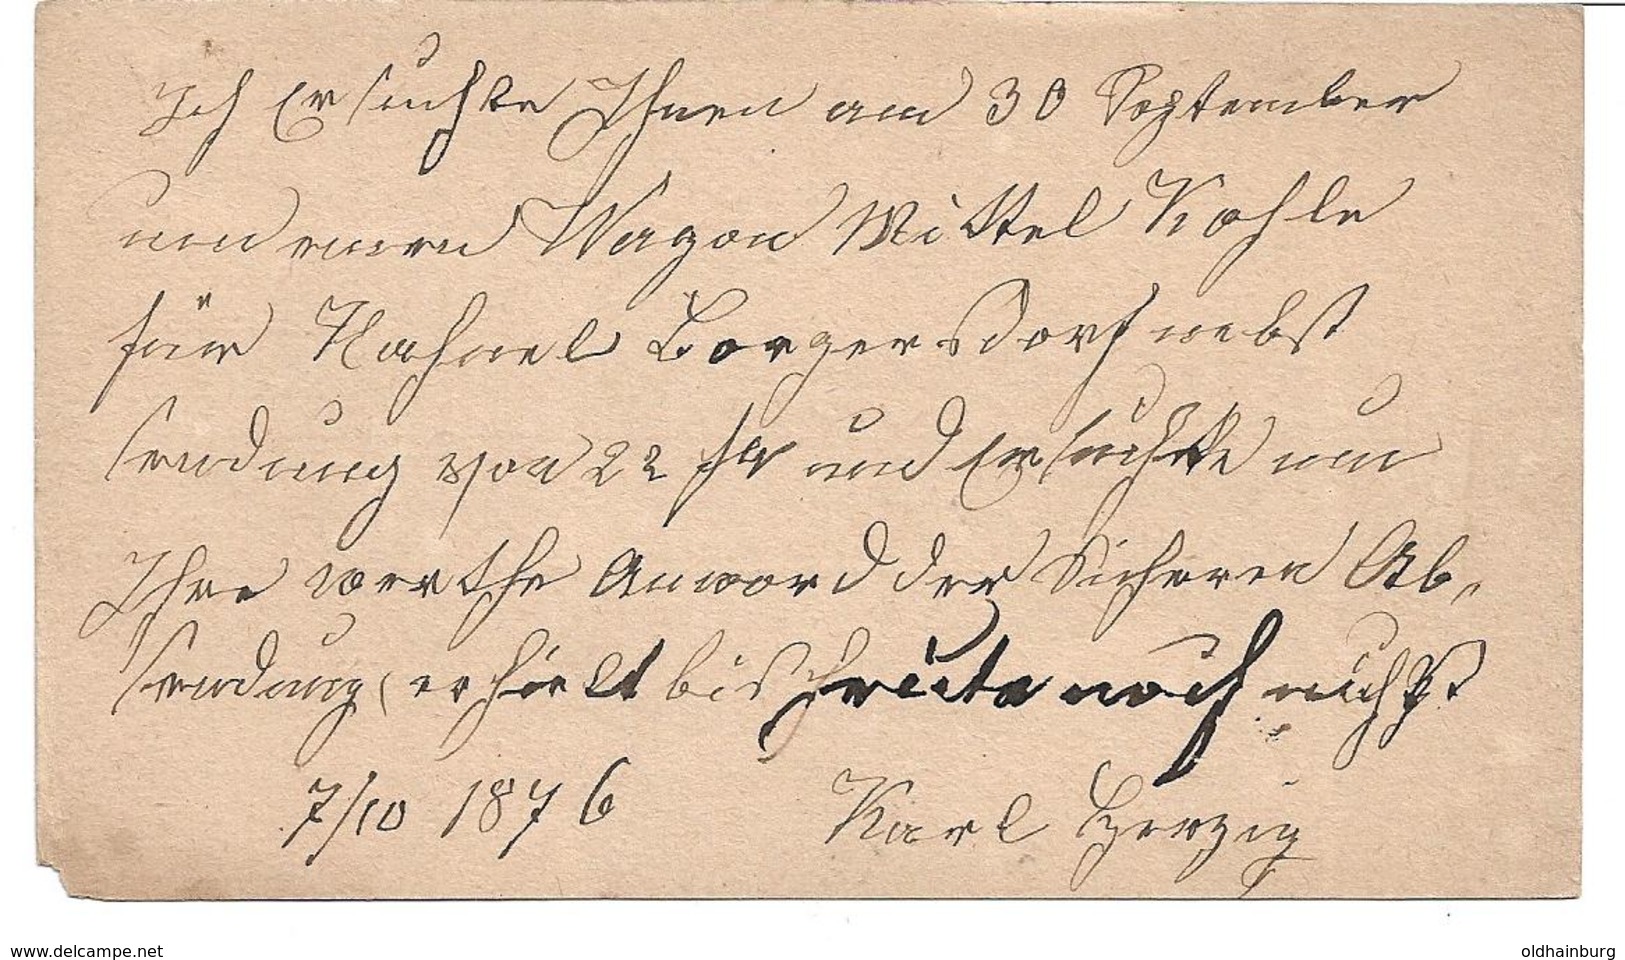 Ich Ersuchte Ihnen am 30 September
um einen Wagon Mittel Kohle
für Hahnel Borgersdorf nebst
sendung von 22 fl und Ersuchte um
Ihre werthe Anword der Sicheren Ab,
sendung, erhielt bis heute noch nichts
7/10 1876 Karl Herzig
www.delcampe.net
oldhainburg